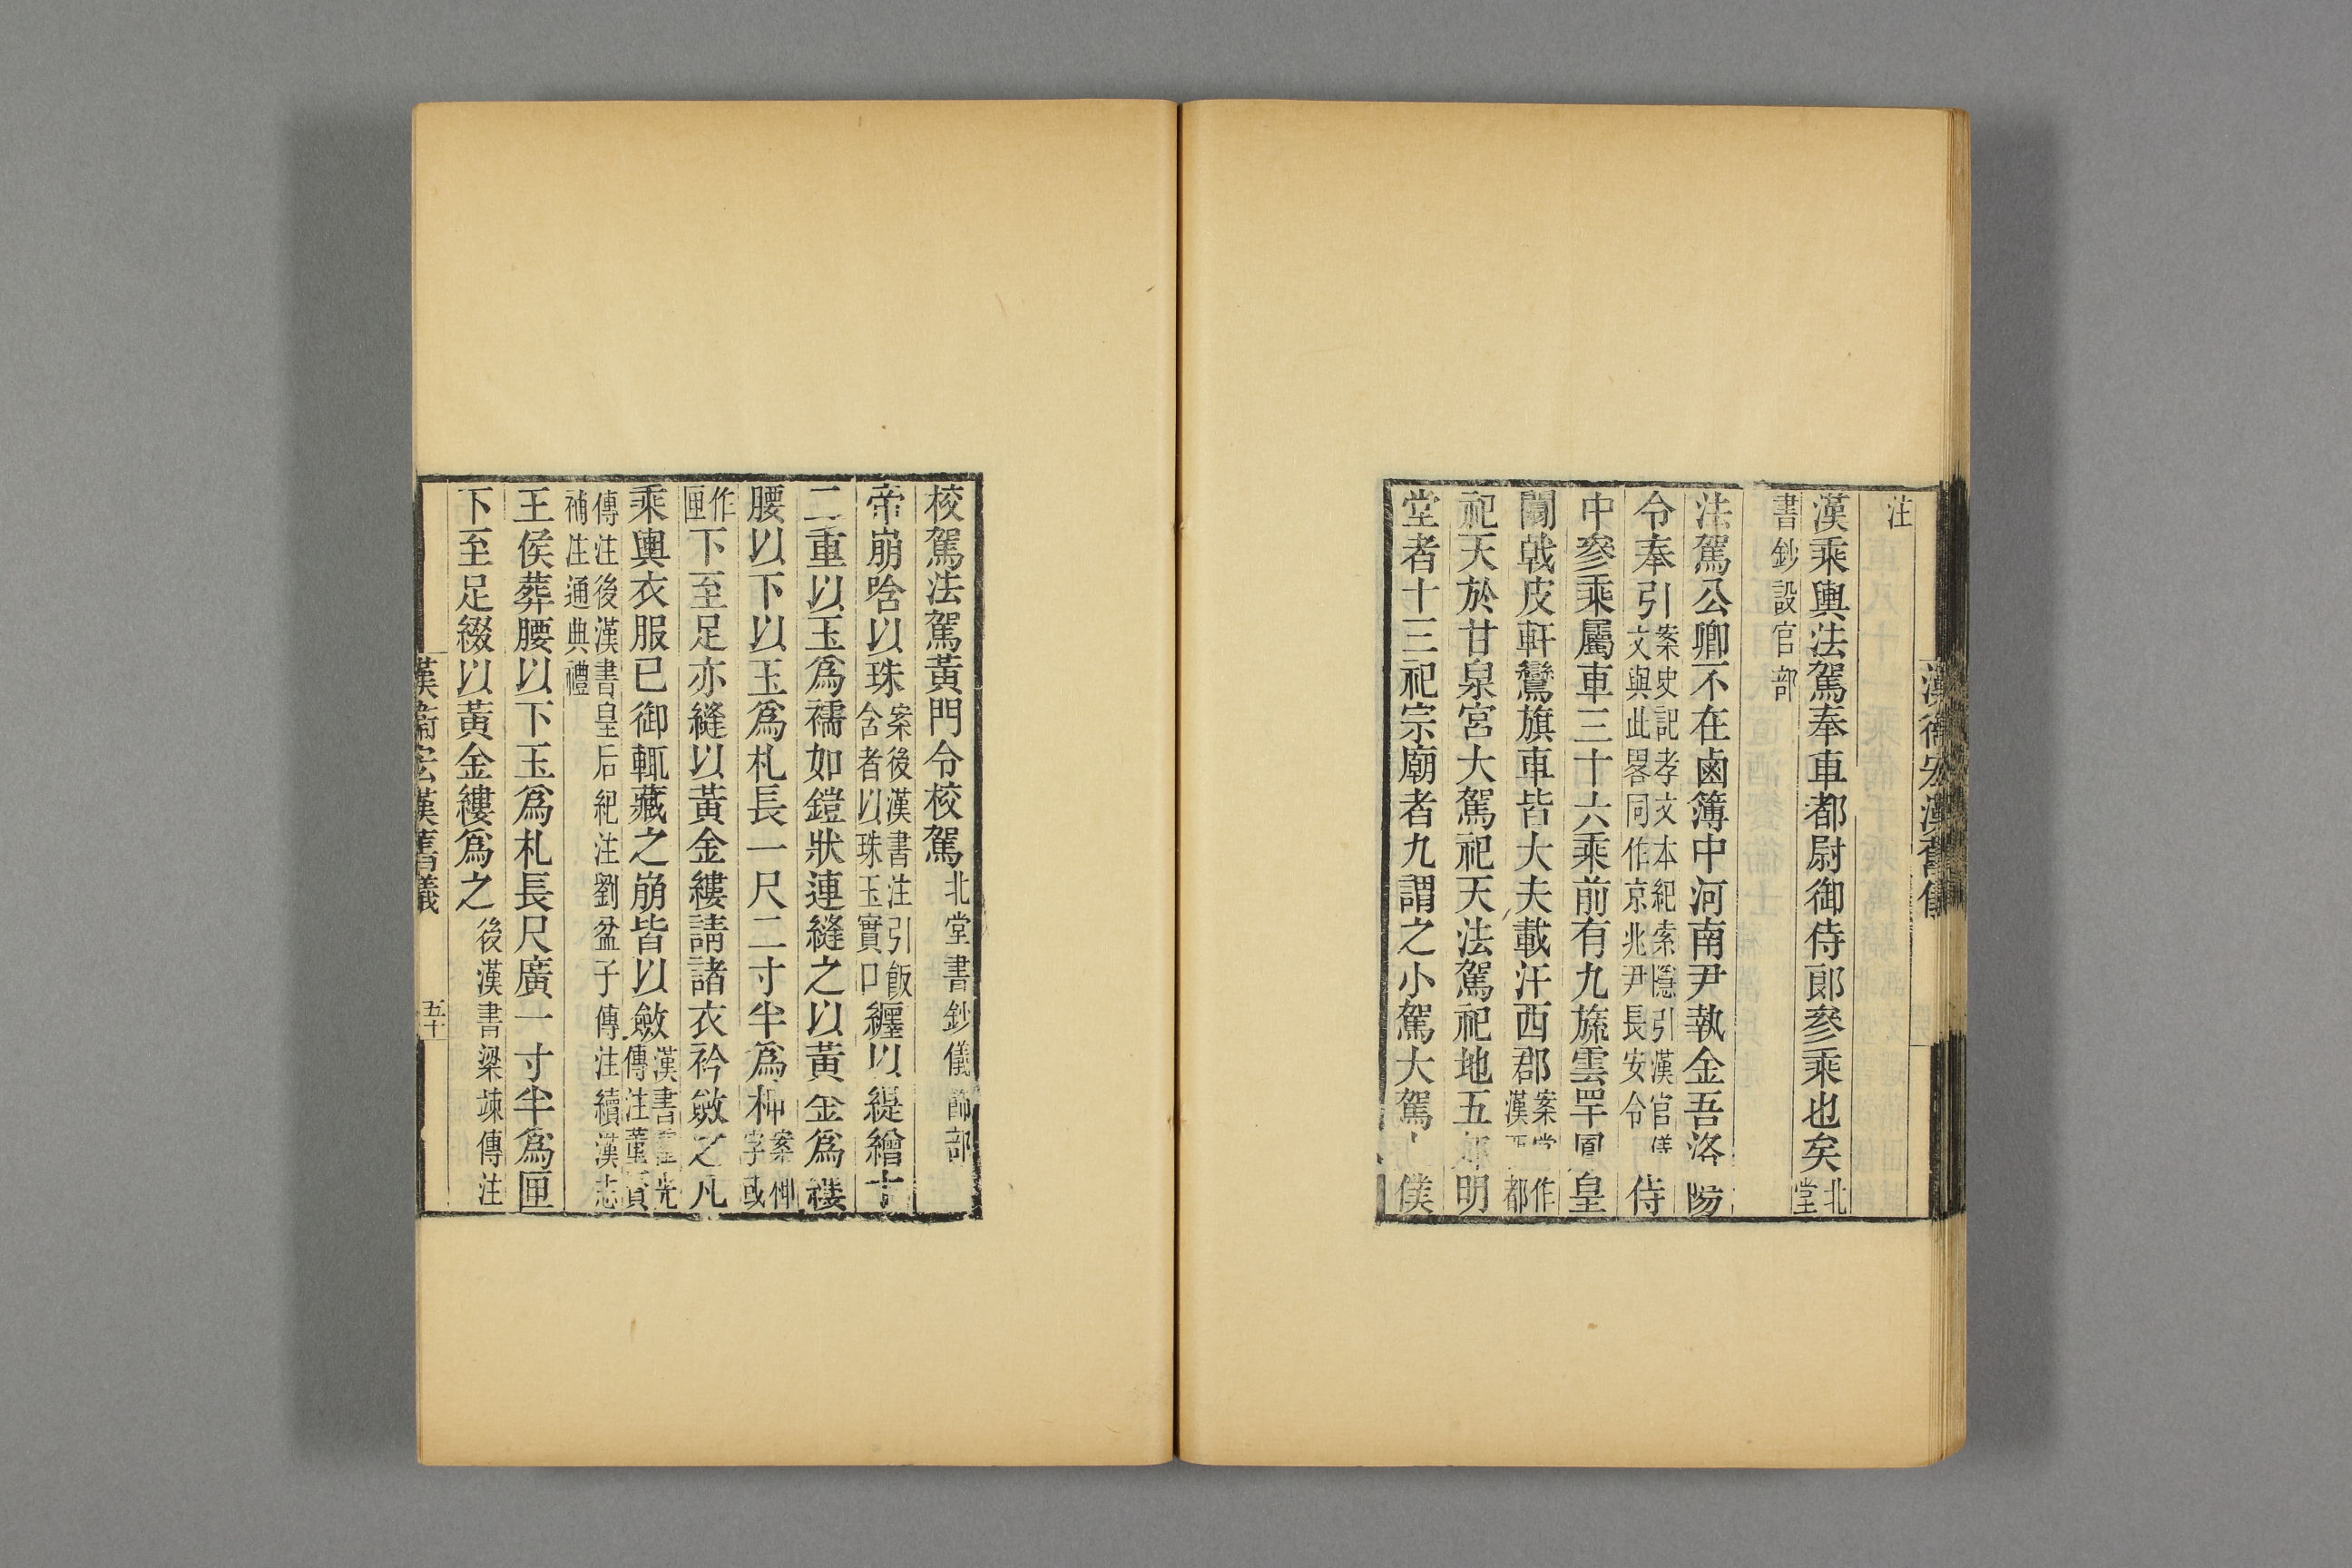 漢衛宏漢舊儀
注
漢乘輿法駕奉車都尉御侍郎參乘也矣北堂
書鈔設官部
法駕公卿不在鹵簿中河南尹執金吾洛陽
令奉引案史記孝文本紀索隱引漢官儀文與此畧同作京兆尹長安令侍
中參乘屬車三十六乘前有九斿雲罕鳳皇
闟戟皮軒鸞旗車皆大夫載汗西郡案當作漢西都
祀天於甘泉宮大駕祀天法駕祀地五郊明
堂者十三祀宗廟者九謂之小駕大駕太僕
校駕法駕黃門令校駕北堂書鈔儀飾部
帝崩唅以珠案後漢書注引飯含者以珠玉實口纒以緹繒十
二重以玉爲襦如鎧狀連縫之以黃金爲縷
腰以下以玉爲札長一尺二寸半爲柙案柙字或
作匣下至足亦縫以黃金縷請諸衣衿斂之凡
乘輿衣服已御輒藏之崩皆以斂漢書霍光傳注董賢
傳注後漢書皇后紀注劉盆子傳注續漢志補注通典禮
王侯葬腰以下玉爲札長尺廣一寸半爲匣
下至足綴以黃金縷爲之後漢書梁竦傳注
漢衛宏漢舊儀
五十